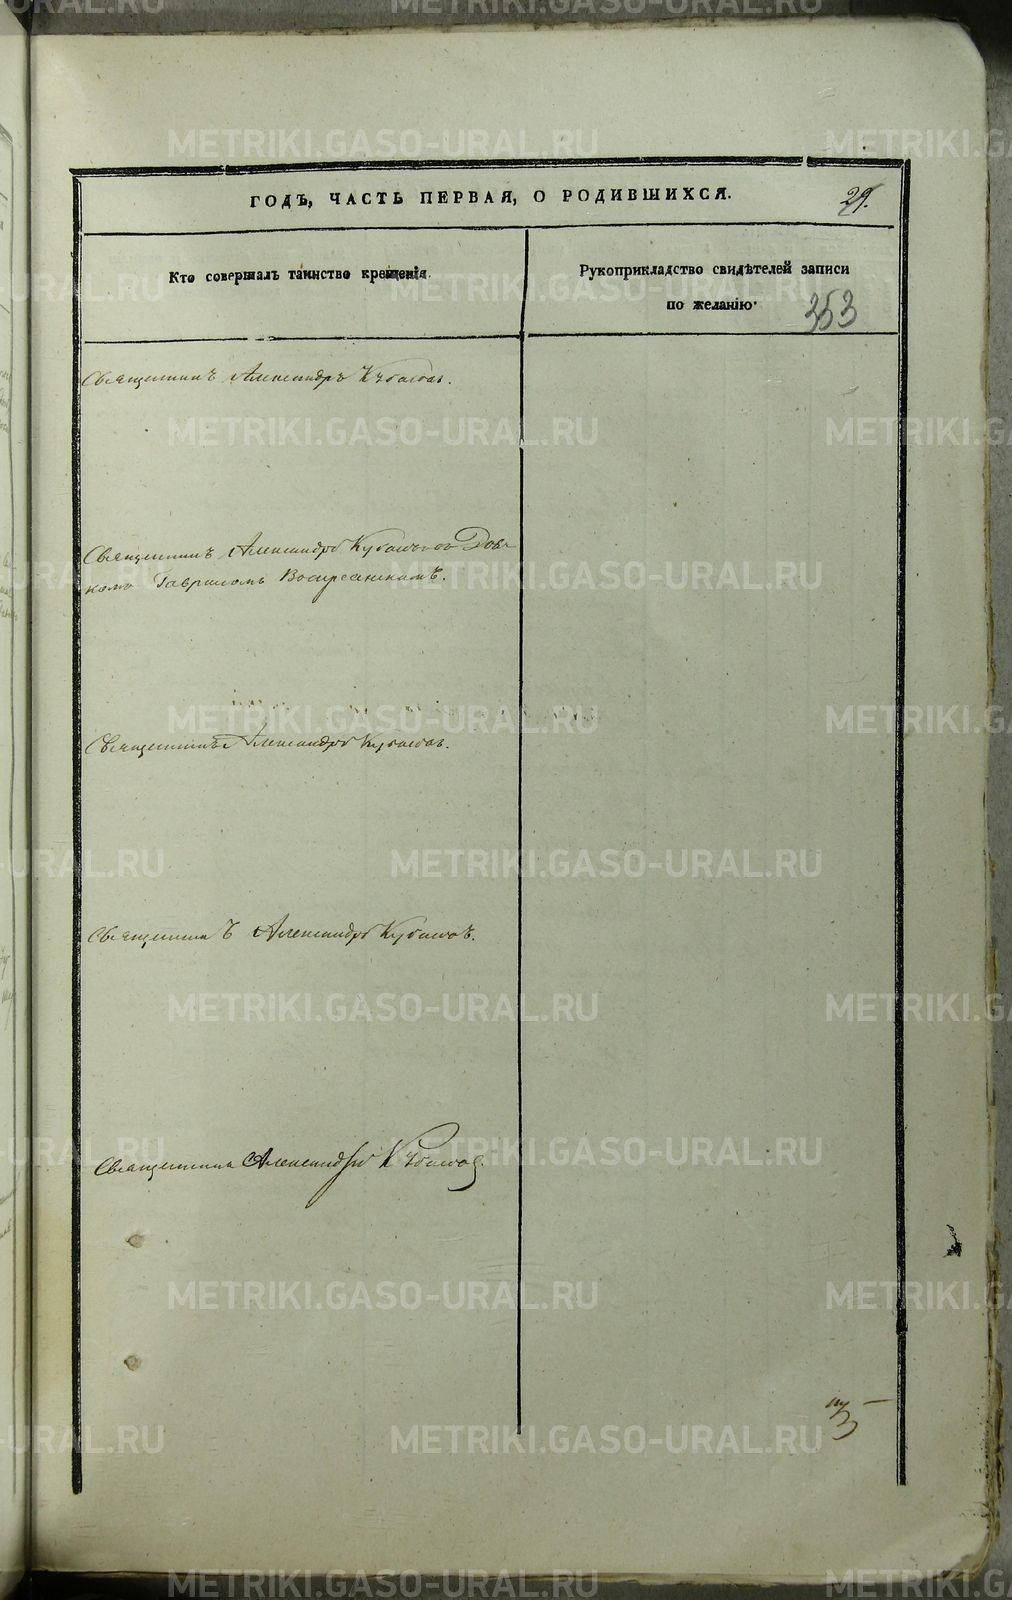 ГОДЪ, ЧАСТЬ ПЕРВАЯ, О РОДИВШИХСЯ.
29.
Кто совершалъ таинство крещенія.
Рукоприкладство свидѣтелей записи
по желанію.
353
Священникъ Александръ Кубасовъ.
Священникъ Александръ Кубасовъ съ
Гавриломъ Воскресенскимъ.
Священникъ Александръ Кубасовъ.
Священникъ Александръ Кубасовъ.
Священникъ Александръ Кубасовъ.
METRIKI.GASO-URAL.RU